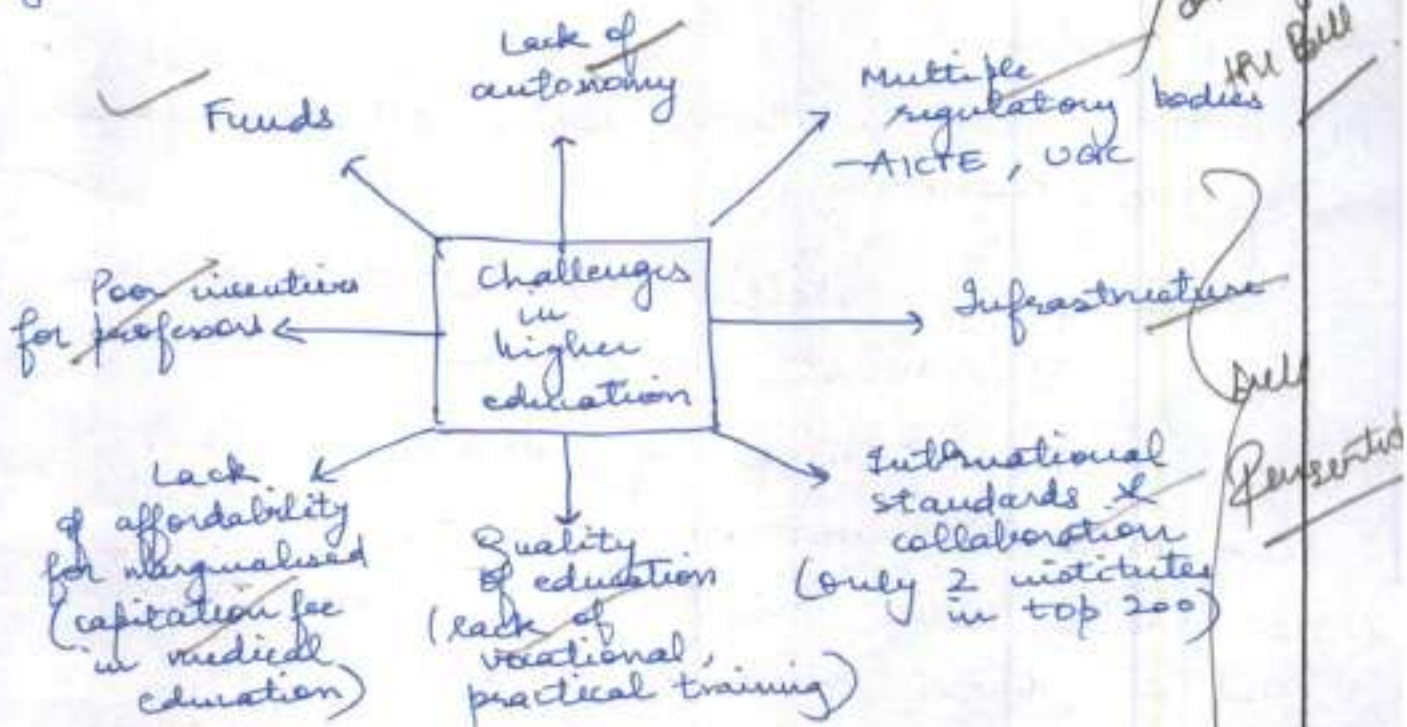 Lack of
autonomy
Funds
Multiple
regulatory bodies
- AICTE, UGC
Bill
Poor incentives
for professors
Challenges
in
higher
education
Infrastructure
Lack
of affordability
for marginalised
(capitation fee
in medical
education)
Quality
of education
(lack of
vocational,
practical training)
International
standards &
collaboration
(only 2 institutes
in top 200)